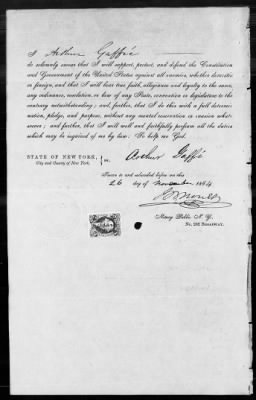 I Arthur Gaffié
do solemnly swear that I will support, protect, and defend the Constitution
and Government of the United States against all enemies, whether domestic
or foreign, and that I will bear true faith, allegiance and loyalty to the same,
any ordinance, resolution or law of any State, convention or legislature to the
contrary notwithstanding; and, further, that I do this with a full determi-
nation, pledge, and purpose, without any mental reservation or evasion what-
soever; and further, that I will well and faithfully perform all the duties
which may be required of me by law: So help me God.
Arthur Gaffié
STATE OF NEW YORK,
City and County of New York.
Sworn to and subscribed before me this
26 day of November 1864
Notary Public N. Y.
No. 192 BROADWAY.